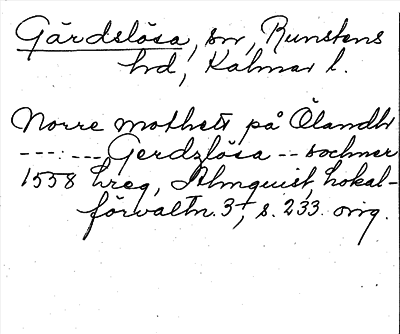 Gärdslösa, sn, Runstens
hd, Kalmar l.
Norre mothett på Ölandh
---:--- Gerdzlösa -- sochner
1558 hreg, Almquist, Lokal-
förvaltn. 3, s. 233 orig.